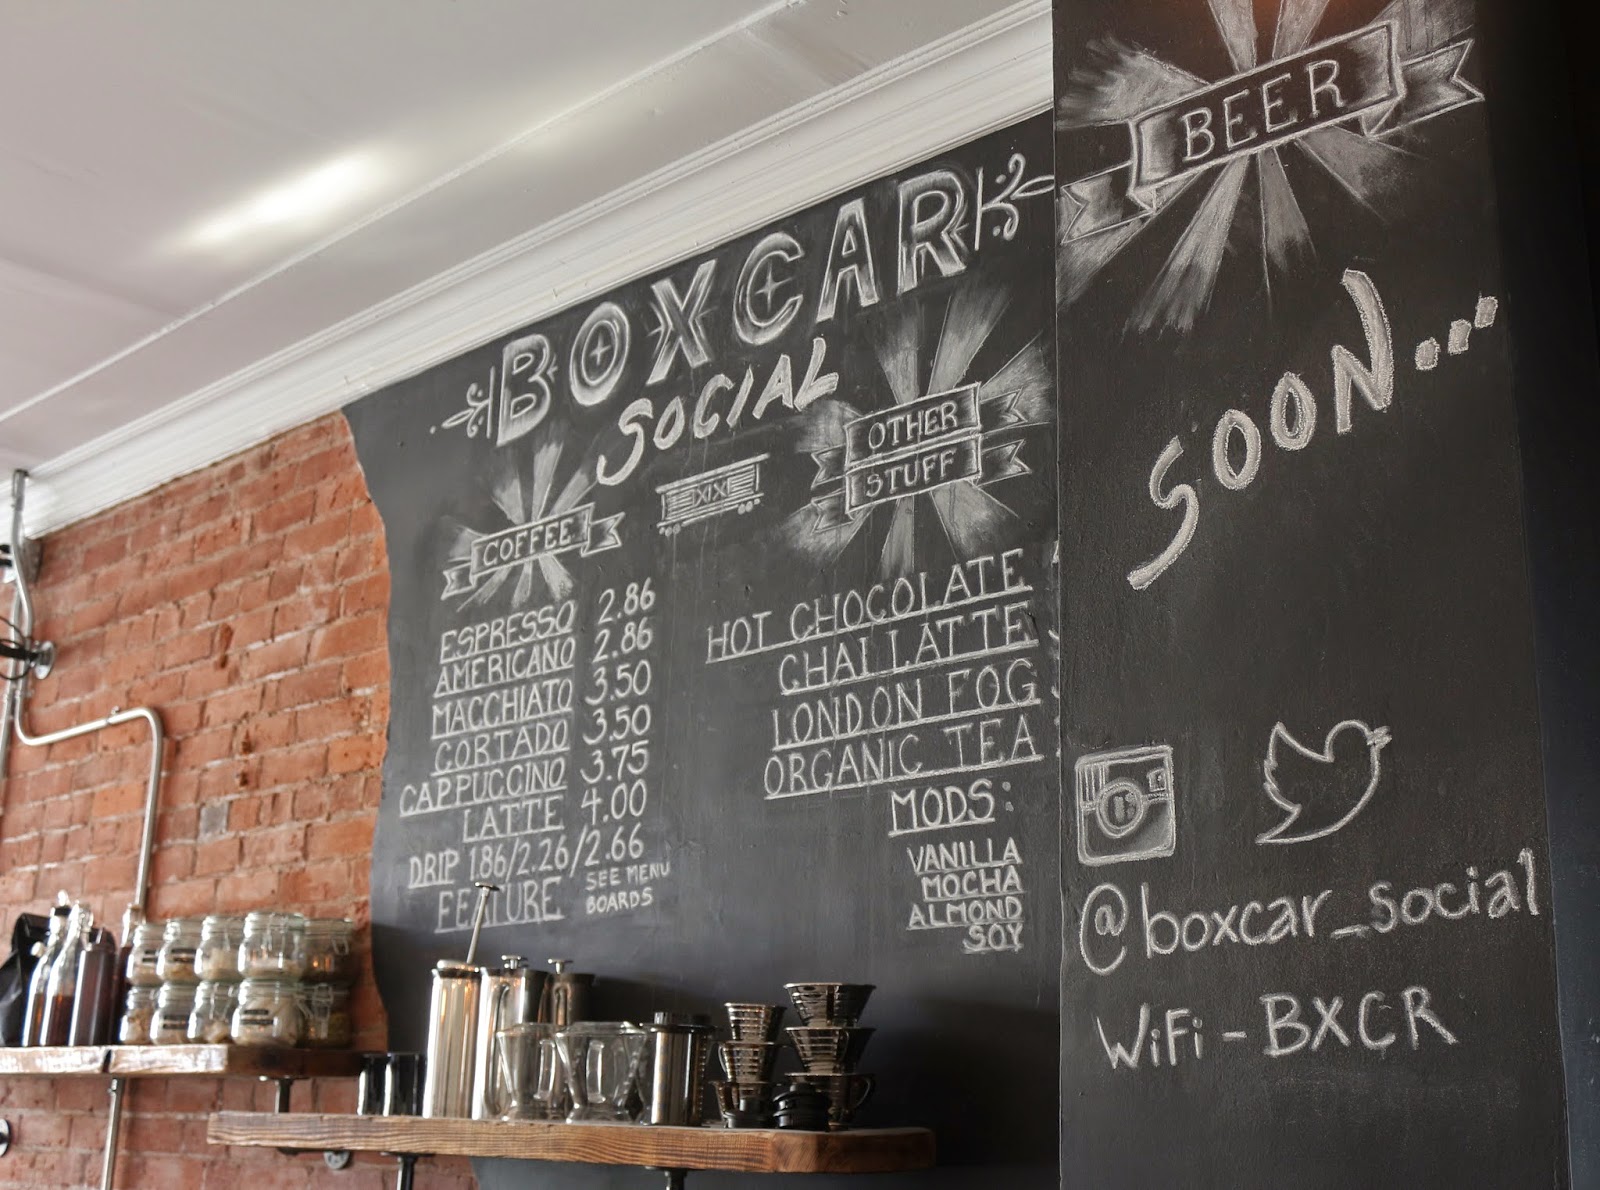 BOXCAR
SOCIAL
XIX
COFFEE
ESPRESSO 2.86
AMERICANO 2.86
MACCHIATO 3.50
CORTADO 3.50
CAPPUCCINO 3.75
LATTE 4.00
DRIP 1.86/2.26/2.66
FEATURE SEE MENU
BOARDS
OTHER
STUFF
HOT CHOCOLATE
CHAI LATTE
LONDON FOG
ORGANIC TEA
MODS:
VANILLA
MOCHA
ALMOND
SOY
BEER
SOON...
@boxcar_social
WiFi - BXCR